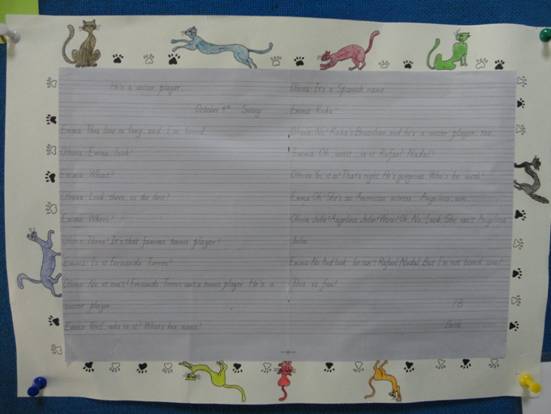 He's a soccer player.
October 9th Sunny
Emma: This line is long, and I'm bored.
Olivia: Emma, look!
Emma: What?
Olivia: Look there, in the line!
Emma: Where?
Olivia: There! It's that famous tennis player!
Emma: Is it Fernando Torres?
Olivia: No, it isn't! Fernando Torres isn't a tennis player. He's a
soccer player.
Emma: And, who is it? What's his name?
Olivia: It's a Spanish name.
Emma: Kaká.
Olivia: No! Kaká's Brazilian, and he's a soccer player, too.
Emma: Oh, wait, is it Rafael Nadal?
Olivia: Yes, it is! That's right. He's gorgeous. Who's he with?
Emma: Oh! She's an American actress. Angelina, um
Olivia: Jolie! Angelina Jolie! Where? Oh. No. Look. She isn't Angelina
Jolie.
Emma: No. And look, he isn't Rafael Nadal. But I'm not bored now!
This is fun!